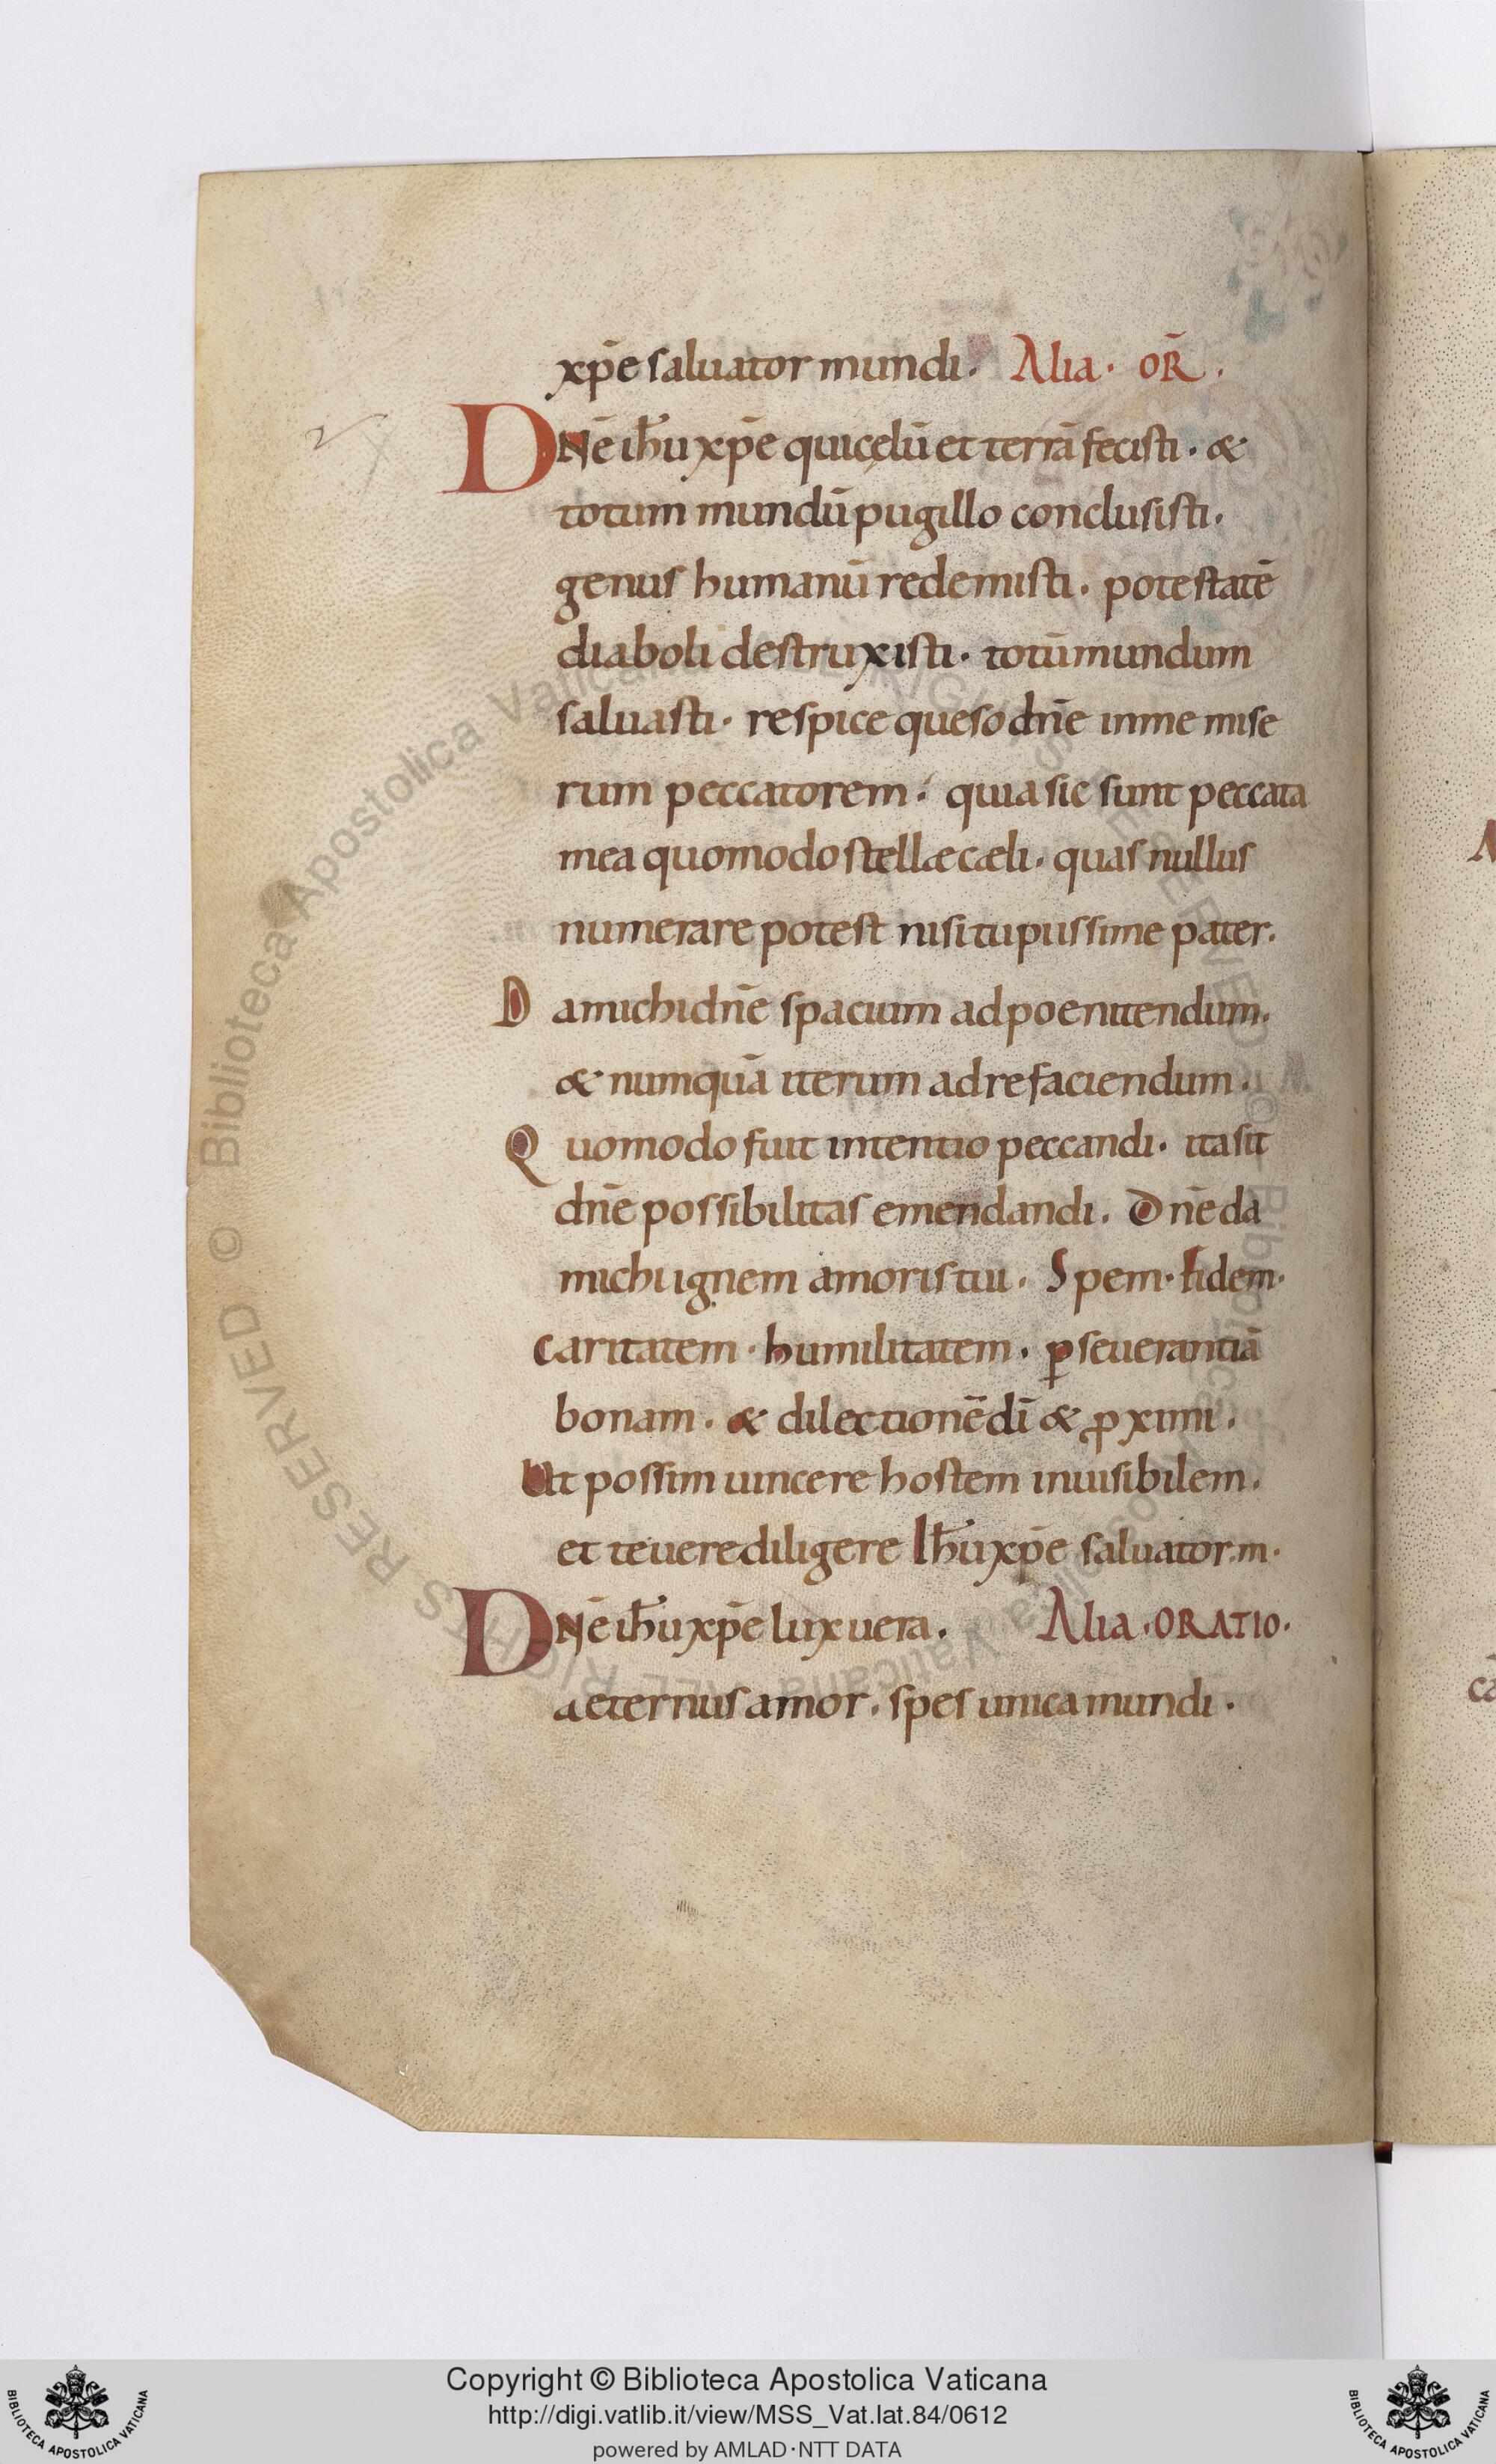 xp̄e saluator mundi. Alia. OR̄.
DNē ih̄u xp̄e qui cęlū et terrā fecisti. &
totum mundū pugillo conclusisti.
genus humanū redemisti. potestatē
diaboli destruxisti. totū mundum
saluasti. respice queso dn̄e in me mise
rum peccatorem. quia sic sunt peccata
mea quomodo stellæ cæli. quas nullus
numerare potest nisi tu piissime pater.
Da michi dn̄e spacium ad poenitendum.
& numquā iterum ad refaciendum.
Quomodo fuit intentio peccandi. ita sit
dn̄e possibilitas emendandi. Dn̄e da
michi ignem amoris tui. Spem. fidem.
caritatem. humilitatem. ꝑseuerantiā
bonam. & dilectionē dī & ꝓximi.
Ut possim uincere hostem inuisibilem.
et te uere diligere Ih̄u xp̄e saluator.m.
DNē ih̄u xp̄e lux uera. Alia. ORATIO.
aeternus amor. spes unica mundi.
Biblioteca Apostolica Vaticana ALL RIGHTS RESERVED ©
Copyright © Biblioteca Apostolica Vaticana
http://digi.vatlib.it/view/MSS_Vat.lat.84/0612
powered by AMLAD·NTT DATA
BIBLIOTECA APOSTOLICA VATICANA
BIBLIOTECA APOSTOLICA VATICANA